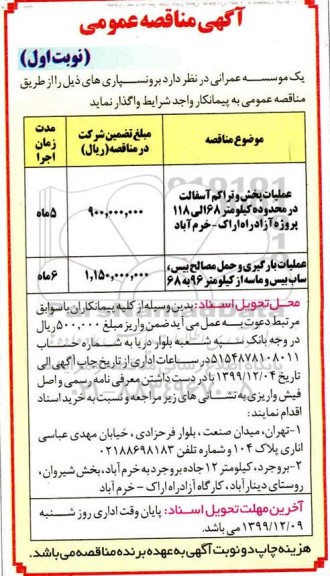 آگهی مناقصه عمومی
(نوبت اول)
یک موسسه عمرانی در نظر دارد برونسپاری های ذیل را از طریق
مناقصه عمومی به پیمانکار واجد شرایط واگذار نماید
موضوع مناقصه
مبلغ تضمین شرکت در مناقصه (ریال)
مدت زمان اجرا
عملیات پخش و تراکم آسفالت
در محدوده کیلومتر ۶۸ الی ۱۱۸
پروژه آزادراه اراک - خرم آباد
۹۰۰,۰۰۰,۰۰۰
۵ ماه
عملیات بارگیری و حمل مصالح بیس،
ساب بیس و ماسه از کیلومتر ۹۶ به ۶۸
۱,۱۵۰,۰۰۰,۰۰۰
۶ ماه
محل تحویل اسناد: بدین وسیله از کلیه پیمانکاران با سوابق
مرتبط دعوت به عمل می آید ضمن واریز مبلغ ۵۰۰,۰۰۰ ریال
در وجه بانک سپه شعبه بلوار دریا به شماره حساب
۵۱۵۴۸۷۸۱۰۸۰۱۱ در ساعات اداری از تاریخ چاپ آگهی الی
تاریخ ۱۳۹۹/۱۲/۰۴ با در دست داشتن معرفی نامه رسمی و اصل
فیش واریزی به نشانی های زیر مراجعه و نسبت به خرید اسناد
اقدام نمایند:
۱-تهران، میدان صنعت، بلوار فرحزادی، خیابان مهدی عباسی
اناری پلاک ۱۰۴ و شماره تلفن ۰۲۱۸۸۶۹۸۱۸۳
۲-بروجرد، کیلومتر ۱۲ جاده بروجرد به خرم آباد، بخش شیروان،
روستای دینارآباد، کارگاه آزادراه اراک - خرم آباد
آخرین مهلت تحویل اسناد: پایان وقت اداری روز شنبه
۱۳۹۹/۱۲/۰۹ می باشد.
هزینه چاپ دو نوبت آگهی به عهده برنده مناقصه می باشد.